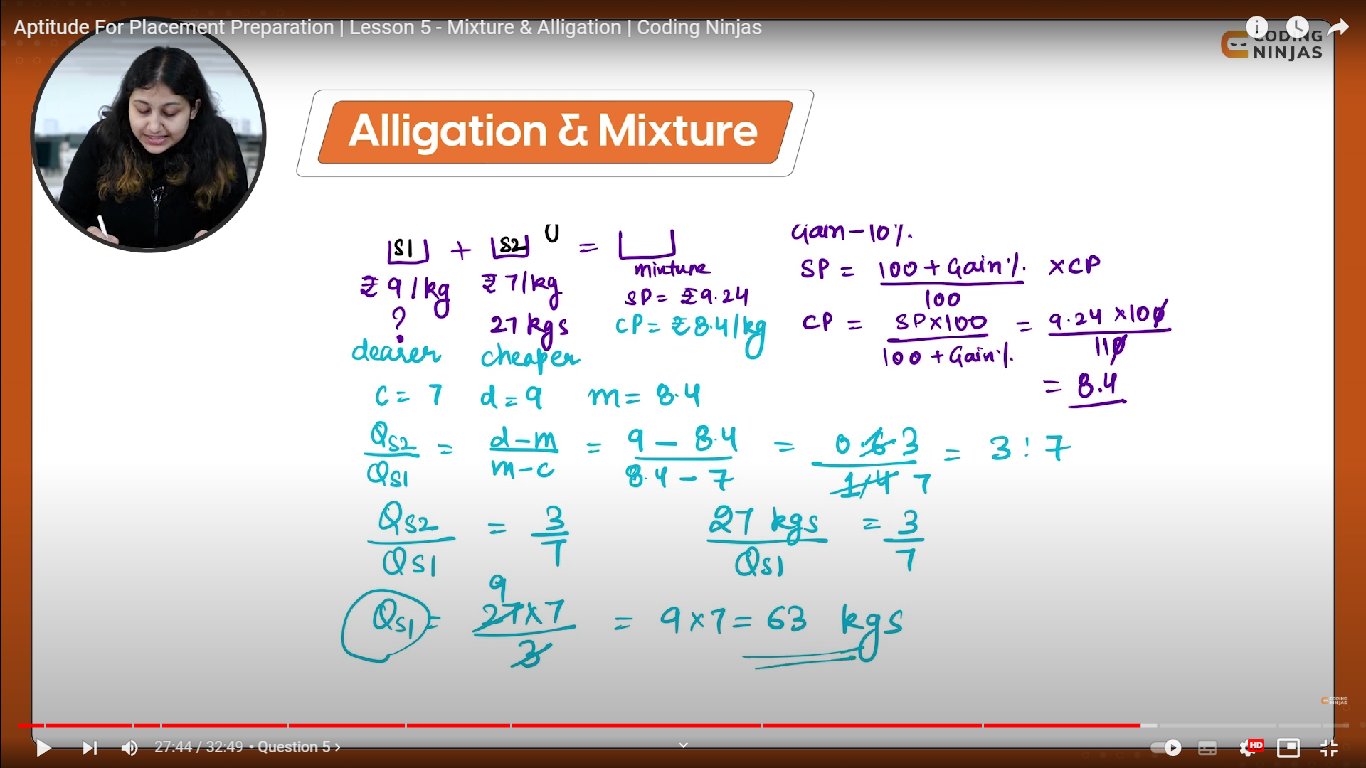 Aptitude For Placement Preparation | Lesson 5 - Mixture & Alligation | Coding Ninjas
CODING
NINJAS
Alligation & Mixture
S1 + S2 = 
mixture
₹ 9/kg ₹ 7/kg SP = ₹9.24
? 27 kgs CP = ₹8.4/kg
dearer cheaper
Gain - 10%.
SP = 100 + Gain% / 100 × CP
CP = SP×100 / 100 + Gain% = 9.24 × 100 / 110
= 8.4
C = 7 d = 9 m = 8.4
QS2 / QS1 = d-m / m-c = 9 - 8.4 / 8.4 - 7 = 0.6 3 / 1.4 7 = 3 : 7
QS2 / QS1 = 3 / 7 27 kgs / QS1 = 3 / 7
QS1 = 27×7 / 3 9 = 9×7 = 63 kgs
CODING
NINJAS
27:44 / 32:49 • Question 5 ›
HD